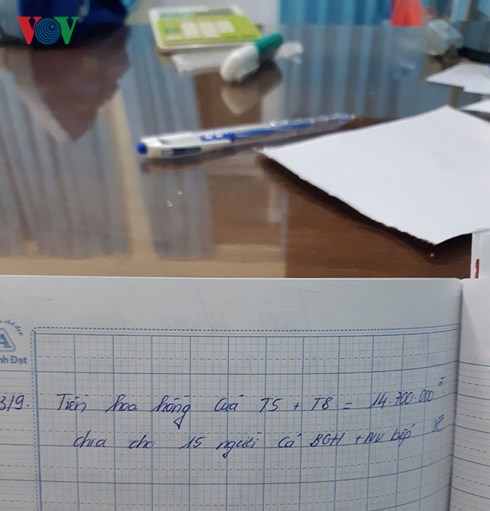 VOV
nh Đạt
3/9. Tiền hoa hồng của T5 + T8 = 14.700.000đ
chia cho 15 người cả BGH + NV bếp